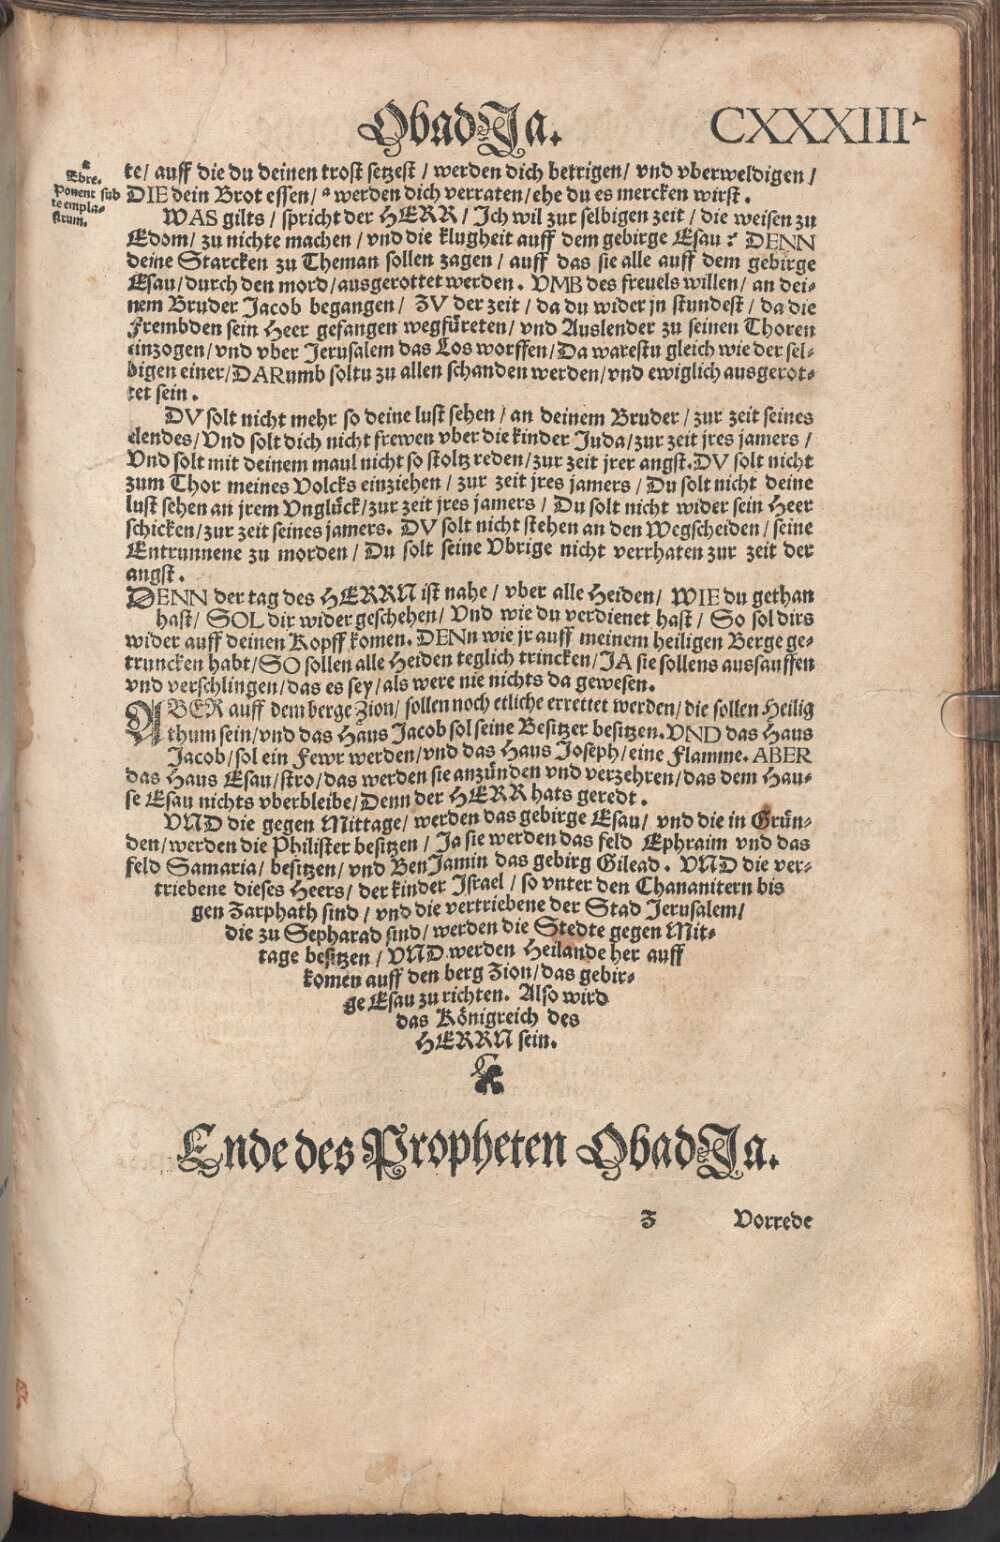 ObadJa. CXXXIII
a
Ebre.
Ponent sub
te empla-
strum.
te/ auff die du deinen trost setzest / werden dich betrigen/ vnd vberweldigen /
DIE dein Brot essen/ a werden dich verraten/ ehe du es mercken wirst.
WAS gilts / spricht der HERR / Ich wil zur selbigen zeit / die weisen zu
Edom/ zu nichte machen / vnd die klugheit auff dem gebirge Esau: DENN
deine Starcken zu Theman sollen zagen / auff das sie alle auff dem gebirge
Esau/ durch den mord/ ausgerottet werden. VMB des freuels willen/ an dei-
nem Bruder Jacob begangen / ZV der zeit / da du wider jn stundest / da die
Frembden sein Heer gefangen wegfüreten/ vnd Auslender zu seinen Thoren
einzogen/ vnd vber Jerusalem das Los worffen/ Da warestu gleich wie der sel-
bigen einer/ DARumb soltu zu allen schanden werden/ vnd ewiglich ausgerot-
tet sein.
DV solt nicht mehr so deine lust sehen / an deinem Bruder / zur zeit seines
elendes/ Vnd solt dich nicht frewen vber die kinder Juda/ zur zeit jres jamers /
Vnd solt mit deinem maul nicht so stoltz reden/ zur zeit jrer angst. DV solt nicht
zum Thor meines Volcks einziehen / zur zeit jres jamers / Du solt nicht deine
lust sehen an jrem Vnglück/ zur zeit jres jamers / Du solt nicht wider sein Heer
schicken/ zur zeit seines jamers. DV solt nicht stehen an den Wegscheiden / seine
Entrunnene zu morden / Du solt seine Vbrige nicht verrhaten zur zeit der
angst.
DENN der tag des HERRN ist nahe / vber alle Heiden/ WIE du gethan
hast/ SOL dir wider geschehen/ Vnd wie du verdienet hast / So sol dirs
wider auff deinen Kopff komen. DENn wie jr auff meinem heiligen Berge ge-
truncken habt/ SO sollen alle Heiden teglich trincken/ JA sie sollens aussauffen
vnd verschlingen/ das es sey/ als were nie nichts da gewesen.
ABER auff dem berge Zion/ sollen noch etliche errettet werden/ die sollen Heilig
thum sein/ vnd das Haus Jacob sol seine Besitzer besitzen. VND das Haus
Jacob/ sol ein Fewr werden/ vnd das Haus Joseph/ eine Flamme. ABER
das Haus Esau/ stro/ das werden sie anzünden vnd verzehren/ das dem Hau-
se Esau nichts vberbleibe/ Denn der HERR hats geredt.
VND die gegen Mittage/ werden das gebirge Esau/ vnd die in Grün-
den/ werden die Philister besitzen / Ja sie werden das feld Ephraim vnd das
feld Samaria/ besitzen/ vnd BenJamin das gebirg Gilead. VND die ver-
triebene dieses Heers/ der kinder Israel / so vnter den Chananitern bis
gen Zarphath sind / vnd die vertriebene der Stad Jerusalem/
die zu Sepharad sind/ werden die Stedte gegen Mit-
tage besitzen / VND werden Heilande her auff
komen auff den berg Zion/ das gebir-
ge Esau zu richten. Also wird
das Königreich des
HERRN sein.
Ende des Propheten ObadJa.
Z Vorrede